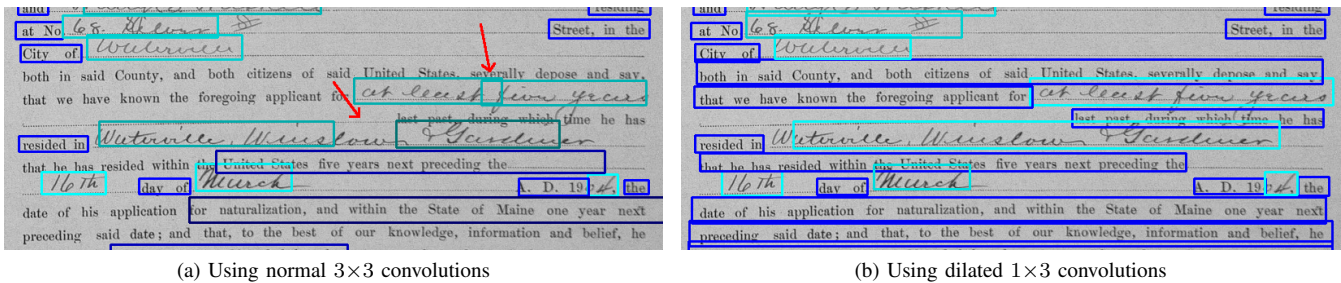 and residing
at No. 68. Street, in the
City of
both in said County, and both citizens of said United States, severally depose and say,
that we have known the foregoing applicant for at least five years
last past, during which time he has
resided in Waterville, Winslow & Gardiner
that he has resided within the United States five years next preceding the
16th day of March A. D. 1904, the
date of his application for naturalization, and within the State of Maine one year next
preceding said date; and that, to the best of our knowledge, information and belief, he
(a) Using normal 3×3 convolutions
and residing
at No. 68. Street, in the
City of
both in said County, and both citizens of said United States, severally depose and say,
that we have known the foregoing applicant for at least five years
last past, during which time he has
resided in Waterville, Winslow & Gardiner
that he has resided within the United States five years next preceding the
16th day of March A. D. 1904, the
date of his application for naturalization, and within the State of Maine one year next
preceding said date; and that, to the best of our knowledge, information and belief, he
(b) Using dilated 1×3 convolutions